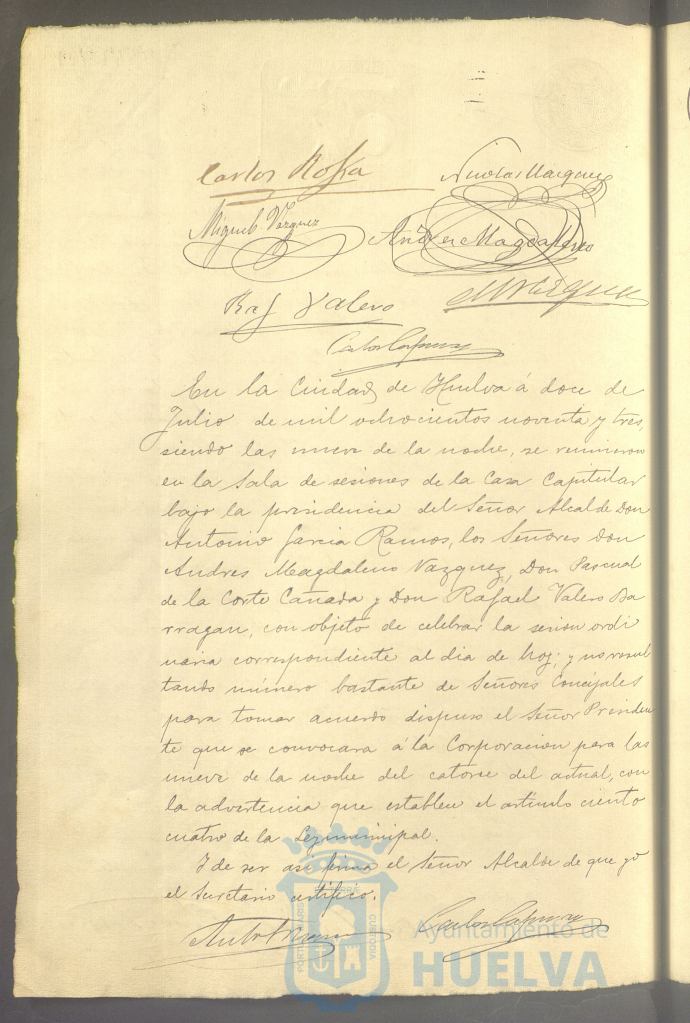 Carlos Nicolas Marquez
Miguel Vazquez Andres Magdaleno
Raf Valero
En la Ciudad de Huelva á doce de
Julio de mil ochocientos noventa y tres,
siendo las nueve de la noche, se reunieron
en la Sala de sesiones de la Casa Capitular
bajo la presidencia del Señor Alcalde Don
Antonio Garcia Ramos, los Señores Don
Andres Magdaleno Vazquez, Don Pascual
de la Corte Cañada y Don Rafael Valero Ba
rragan, con objeto de celebrar la sesion ordi
naria correspondiente al dia de hoy; y no resul
tando número bastante de Señores Concejales
para tomar acuerdo dispuso el Señor Presiden
te que se convocara á la Corporacion para las
nueve de la noche del catorce del actual, con
la advertencia que establece el artículo ciento
cuatro de la Ley municipal.
Y de ser asi firma el Señor Alcalde de que yo
el Secretario certifico.
Ayuntamiento de
HUELVA